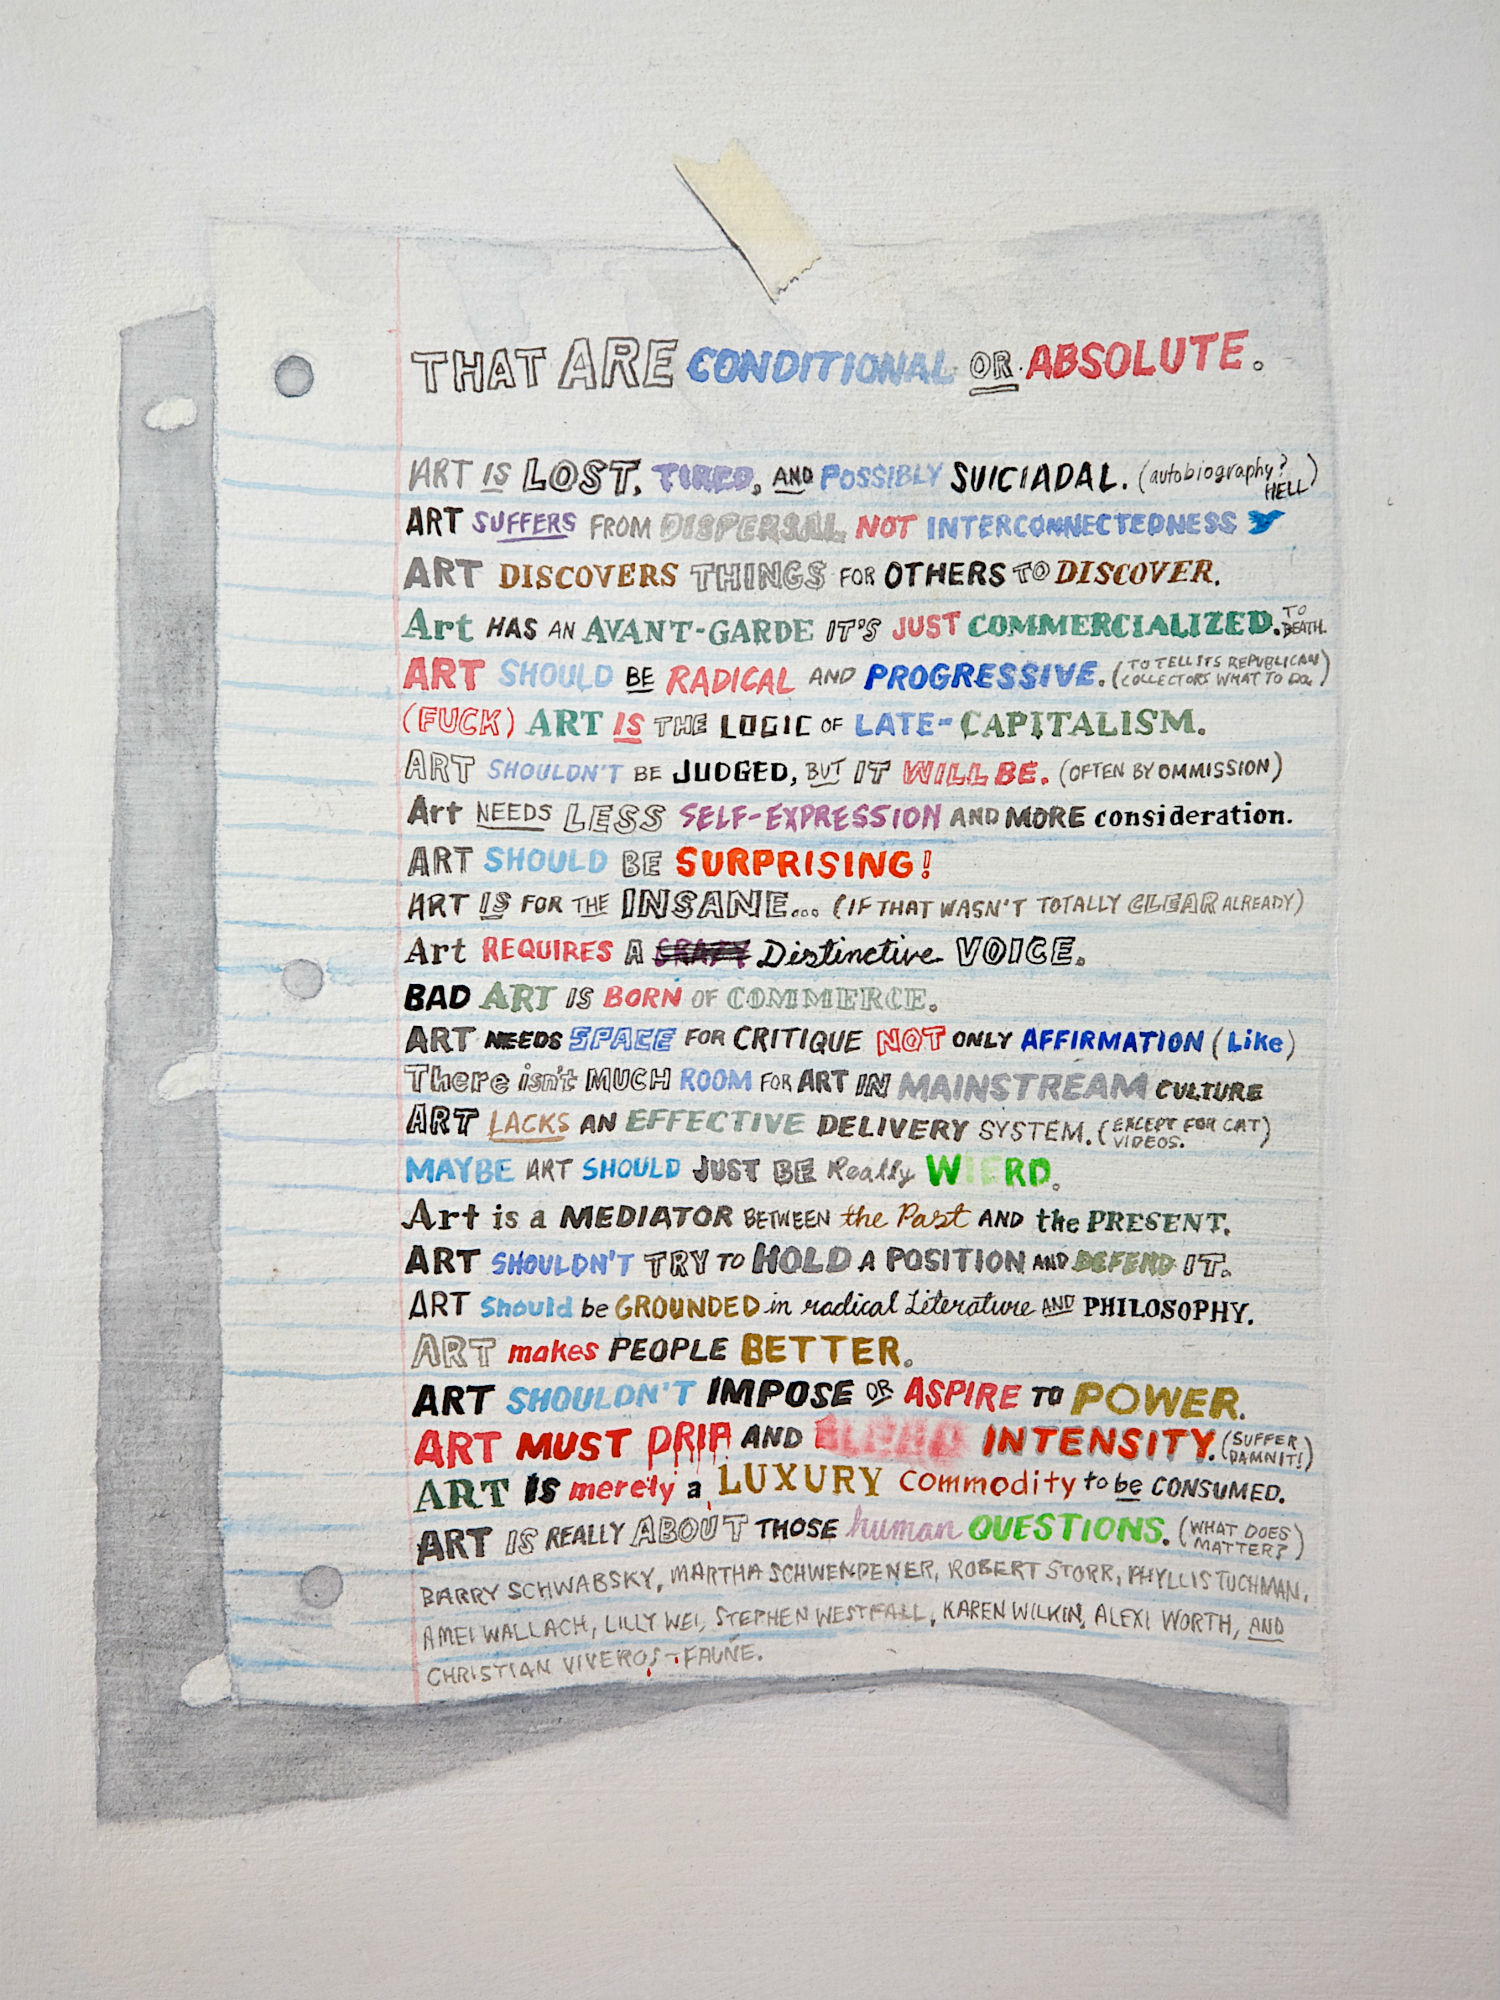 THAT ARE CONDITIONAL OR ABSOLUTE.
ART IS LOST, TIRED, AND POSSIBLY SUICIADAL. (autobiography? HELL)
ART SUFFERS FROM DISPERSAL NOT INTERCONNECTEDNESS
ART DISCOVERS THINGS FOR OTHERS TO DISCOVER.
Art HAS AN AVANT-GARDE IT'S JUST COMMERCIALIZED. TO DEATH.
ART SHOULD BE RADICAL AND PROGRESSIVE. (TO TELL ITS REPUBLICAN COLLECTORS WHAT TO DO.)
(FUCK) ART IS THE LOGIC OF LATE-CAPITALISM.
ART SHOULDN'T BE JUDGED, BUT IT WILL BE. (OFTEN BY OMMISSION)
Art NEEDS LESS SELF-EXPRESSION AND MORE consideration.
ART SHOULD BE SURPRISING!
ART IS FOR THE INSANE... (IF THAT WASN'T TOTALLY CLEAR ALREADY)
Art REQUIRES A CRAZY Distinctive VOICE.
BAD ART IS BORN OF COMMERCE.
ART NEEDS SPACE FOR CRITIQUE NOT ONLY AFFIRMATION (Like)
There isn't MUCH ROOM FOR ART IN MAINSTREAM CULTURE
ART LACKS AN EFFECTIVE DELIVERY SYSTEM. (EXCEPT FOR CAT VIDEOS.)
MAYBE ART SHOULD JUST BE Really WIERD.
Art is a MEDIATOR BETWEEN the Past AND the PRESENT.
ART SHOULDN'T TRY TO HOLD A POSITION AND DEFEND IT.
ART Should be GROUNDED in radical Literature AND PHILOSOPHY.
ART makes PEOPLE BETTER.
ART SHOULDN'T IMPOSE OR ASPIRE TO POWER.
ART MUST DRIP AND BLEED INTENSITY. (SUFFER DAMNIT!)
ART IS merely a LUXURY Commodity to be CONSUMED.
ART IS REALLY ABOUT THOSE human QUESTIONS. (WHAT DOES MATTER?)
BARRY SCHWABSKY, MARTHA SCHWENDENER, ROBERT STORR, PHYLLIS TUCHMAN,
AMEI WALLACH, LILLY WEI, STEPHEN WESTFALL, KAREN WILKIN, ALEXI WORTH, AND
CHRISTIAN VIVEROS-FAUNE.